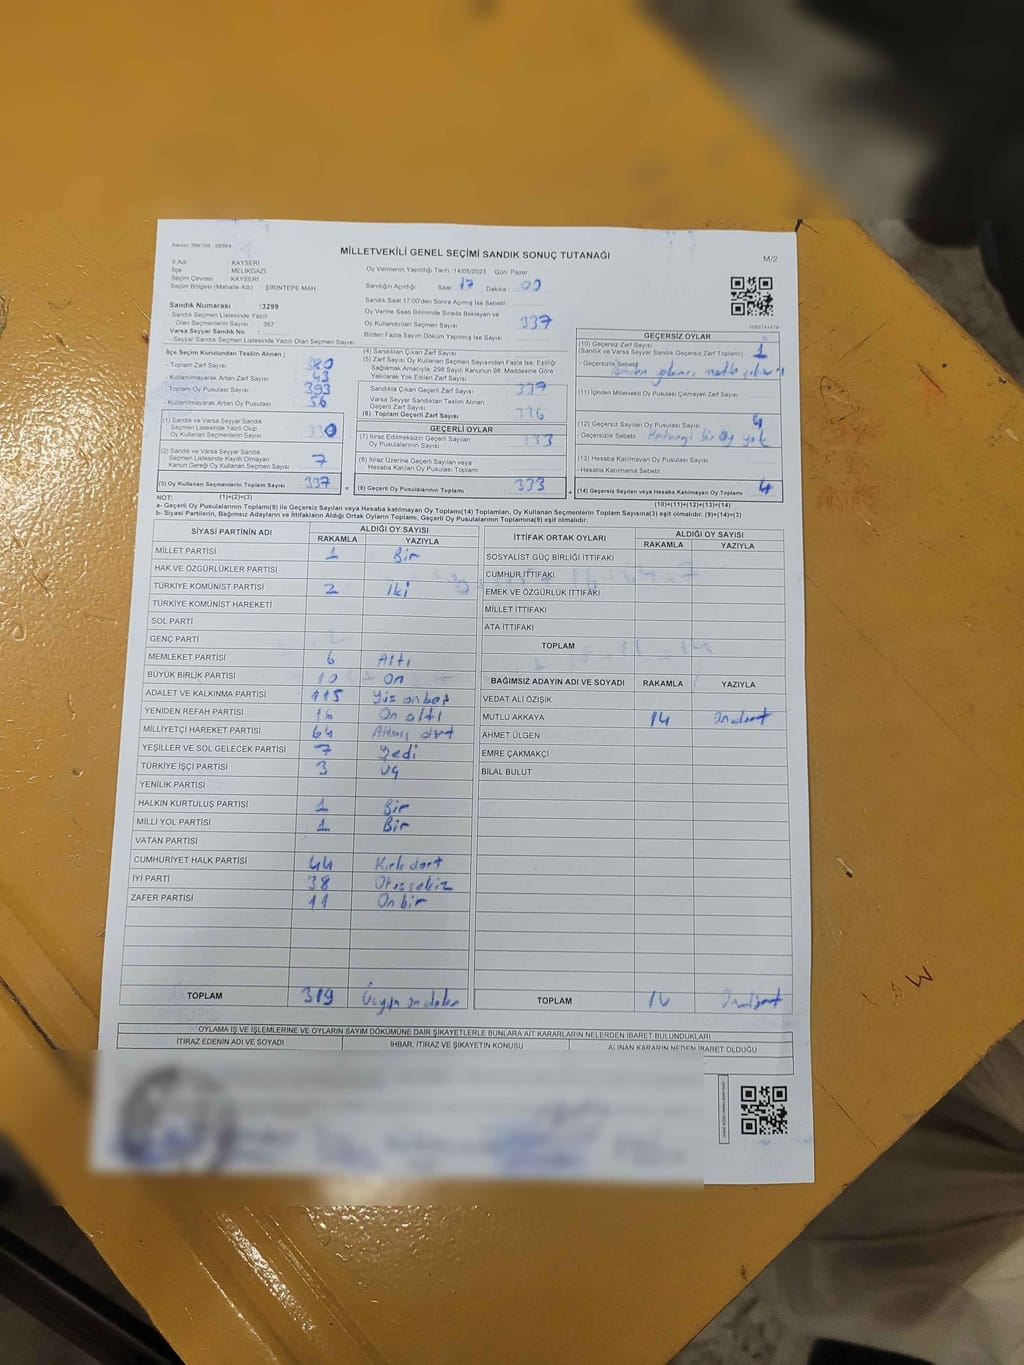 Kanun: 298/105 ; 2839/4
MİLLETVEKİLİ GENEL SEÇİMİ SANDIK SONUÇ TUTANAĞI
M/2
İl Adı : KAYSERİ
İlçe : MELİKGAZİ
Seçim Çevresi : KAYSERİ
Seçim Bölgesi (Mahalle Adı) : ŞİRİNTEPE MAH
Oy Vermenin Yapıldığı Tarih :14/05/2023 Gün: Pazar
Sandığın Açıldığı Saat : 17 Dakika : 00
Sandık Saat 17:00'den Sonra Açılmış İse Sebebi :
Sandık Numarası :3299
- Sandık Seçmen Listesinde Yazılı
Olan Seçmenlerin Sayısı : 367
Varsa Seyyar Sandık No :
- Seyyar Sandık Seçmen Listesinde Yazılı Olan Seçmen Sayısı
Oy Verme Saati Bitiminde Sırada Bekleyen ve
Oy Kullandırılan Seçmen Sayısı : 337
Birden Fazla Sayım Döküm Yapılmış İse Sayısı :
1083741479
İlçe Seçim Kurulundan Teslim Alınan ;
- Toplam Zarf Sayısı : 380
- Kullanılmayarak Artan Zarf Sayısı : 43
- Toplam Oy Pusulası Sayısı : 393
- Kullanılmayarak Artan Oy Pusulası : 56
(1) Sandık ve Varsa Seyyar Sandık
Seçmen Listesinde Yazılı Olup
Oy Kullanan Seçmenlerin Sayısı : 330
(2) Sandık ve Varsa Seyyar Sandık
Seçmen Listesinde Kayıtlı Olmayan
Kanun Gereği Oy Kullanan Seçmen Sayısı : 7
(3) Oy Kullanan Seçmenlerin Toplam Sayısı : 337
(1)+(2)=(3)
(4) Sandıktan Çıkan Zarf Sayısı
(5) Zarf Sayısı Oy Kullanan Seçmen Sayısından Fazla İse, Eşitliği
Sağlamak Amacıyla, 298 Sayılı Kanunun 98. Maddesine Göre
Yakılarak Yok Edilen Zarf Sayısı
Sandıkta Çıkan Geçerli Zarf Sayısı : 337
Varsa Seyyar Sandıktan Teslim Alınan
Geçerli Zarf Sayısı
(6) Toplam Geçerli Zarf Sayısı : 336
GEÇERLİ OYLAR
(7) İtiraz Edilmeksizin Geçerli Sayılan
Oy Pusulalarının Sayısı : 333
(8) İtiraz Üzerine Geçerli Sayılan veya
Hesaba Katılan Oy Pusulası Toplamı :
(9) Geçerli Oy Pusulalarının Toplamı : 333
GEÇERSİZ OYLAR
(10) Geçersiz Zarf Sayısı : 1
(Sandık ve Varsa Seyyar Sandık Geçersiz Zarf Toplamı)
- Geçersizlik Sebebi :
(11) İçinden Milletvekili Oy Pusulası Çıkmayan Zarf Sayısı :
(12) Geçersiz Sayılan Oy Pusulası Sayısı : 4
- Geçersizlik Sebebi : Herhangi bir oy yok
(13) Hesaba Katılmayan Oy Pusulası Sayısı :
- Hesaba Katılmama Sebebi :
(14) Geçersiz Sayılan veya Hesaba Katılmayan Oy Toplamı : 4
(10)+(11)+(12)+(13)=(14)
NOT:
a- Geçerli Oy Pusulalarının Toplamı(9) ile Geçersiz Sayılan veya Hesaba katılmayan Oy Toplamı(14) Toplamları, Oy Kullanan Seçmenlerin Toplam Sayısına(3) eşit olmalıdır. (9)+(14)=(3)
b- Siyasi Partilerin, Bağımsız Adayların ve İttifakların Aldığı Ortak Oyların Toplamı, Geçerli Oy Pusulalarının Toplamına(9) eşit olmalıdır.
SİYASİ PARTİNİN ADI ALDIĞI OY SAYISI
RAKAMLA YAZIYLA
MİLLET PARTİSİ 1 Bir
HAK VE ÖZGÜRLÜKLER PARTİSİ
TÜRKİYE KOMÜNİST PARTİSİ 2 İki
TÜRKİYE KOMÜNİST HAREKETİ
SOL PARTİ
GENÇ PARTİ
MEMLEKET PARTİSİ 6 Altı
BÜYÜK BİRLİK PARTİSİ 10 On
ADALET VE KALKINMA PARTİSİ 115 Yüz onbeş
YENİDEN REFAH PARTİSİ 16 On altı
MİLLİYETÇİ HAREKET PARTİSİ 64 Altmış dört
YEŞİLLER VE SOL GELECEK PARTİSİ 7 Yedi
TÜRKİYE İŞÇİ PARTİSİ 3 Üç
YENİLİK PARTİSİ
HALKIN KURTULUŞ PARTİSİ 1 Bir
MİLLİ YOL PARTİSİ 1 Bir
VATAN PARTİSİ
CUMHURİYET HALK PARTİSİ 44 Kırk dört
İYİ PARTİ 38 Otuz sekiz
ZAFER PARTİSİ 11 On bir
TOPLAM 319 Üçyüz on dokuz
İTTİFAK ORTAK OYLARI ALDIĞI OY SAYISI
RAKAMLA YAZIYLA
SOSYALİST GÜÇ BİRLİĞİ İTTİFAKI
CUMHUR İTTİFAKI
EMEK VE ÖZGÜRLÜK İTTİFAKI
MİLLET İTTİFAKI
ATA İTTİFAKI
TOPLAM
BAĞIMSIZ ADAYIN ADI VE SOYADI RAKAMLA YAZIYLA
VEDAT ALİ ÖZIŞIK
MUTLU AKKAYA 14 Ondört
AHMET ÜLGEN
EMRE ÇAKMAKÇİ
BİLAL BULUT
TOPLAM 14 Ondört
OYLAMA İŞ VE İŞLEMLERİNE VE OYLARIN SAYIM DÖKÜMÜNE DAİR ŞİKAYETLERLE BUNLARA AİT KARARLARIN NELERDEN İBARET BULUNDUKLARI
İTİRAZ EDENİN ADI VE SOYADI İHBAR, İTİRAZ VE ŞİKAYETİN KONUSU ALINAN KARARIN NEDEN İBARET OLDUĞU